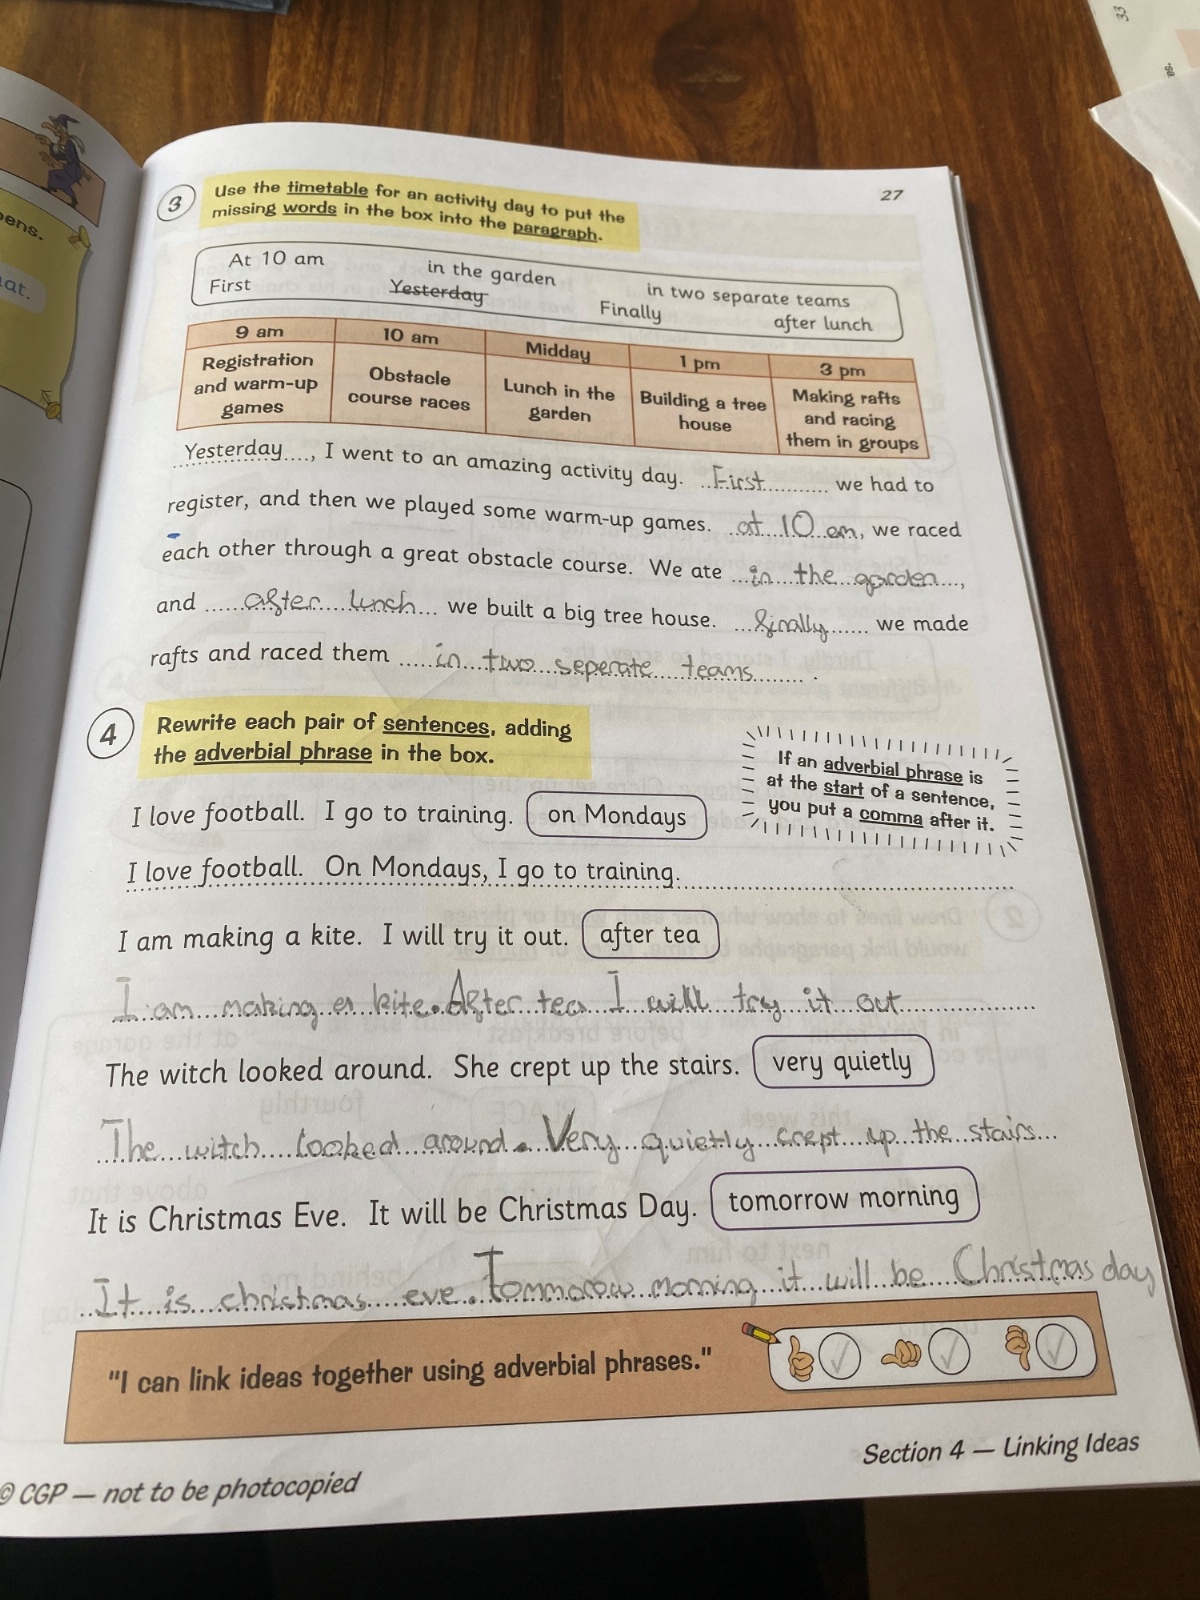 33
-as
ens.
at.
27
3 Use the timetable for an activity day to put the
missing words in the box into the paragraph.
At 10 am in the garden in two separate teams
First Yesterday Finally after lunch
9 am 10 am Midday 1 pm 3 pm
Registration and warm-up games
Obstacle course races
Lunch in the garden
Building a tree house
Making rafts and racing them in groups
Yesterday, I went to an amazing activity day. First we had to
register, and then we played some warm-up games. at 10 am, we raced
each other through a great obstacle course. We ate in the garden,
and after lunch we built a big tree house. finally we made
rafts and raced them in two seperate teams.
4 Rewrite each pair of sentences, adding
the adverbial phrase in the box.
If an adverbial phrase is
at the start of a sentence,
you put a comma after it.
I love football. I go to training. on Mondays
I love football. On Mondays, I go to training.
I am making a kite. I will try it out. after tea
I am making a kite. After tea I will try it out
The witch looked around. She crept up the stairs. very quietly
The witch looked around. Very quietly crept up the stairs
It is Christmas Eve. It will be Christmas Day. tomorrow morning
It is christmas eve. Tommorow morning it will be Christmas day
"I can link ideas together using adverbial phrases."
Section 4 — Linking Ideas
© CGP — not to be photocopied